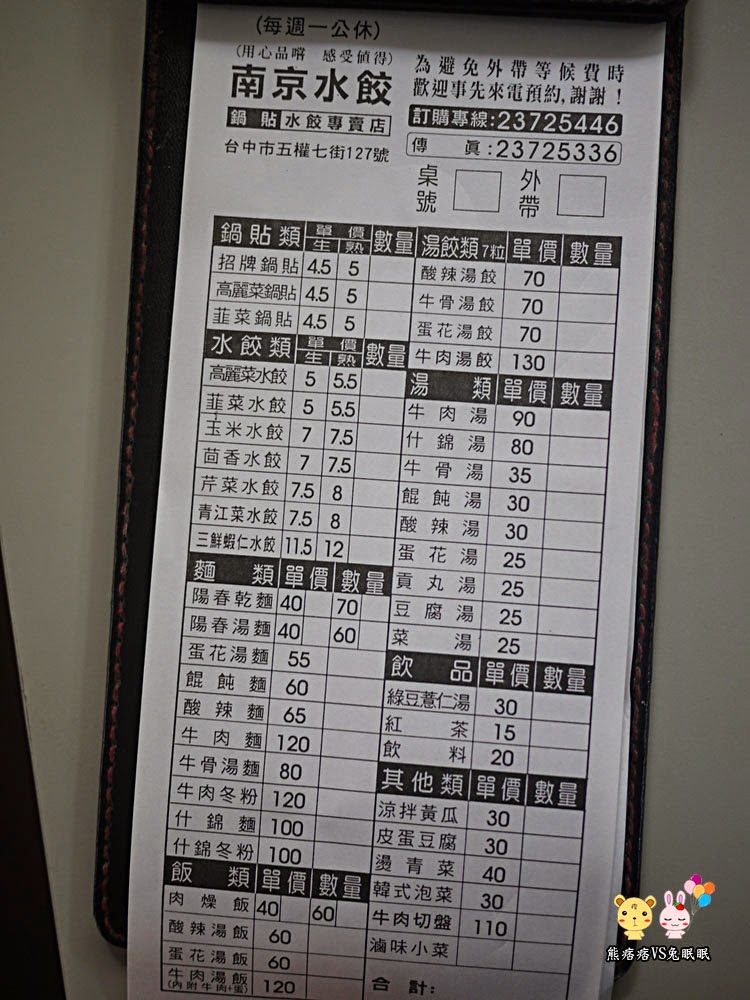 (每週一公休)
(用心品嚐 感受值得)
南京水餃
鍋貼水餃專賣店
台中市五權七街127號
為避免外帶等候費時
歡迎事先來電預約,謝謝!
訂購專線:23725446
傳 真:23725336
桌號 外帶
鍋貼類 單價 生 熟 數量
招牌鍋貼 4.5 5
高麗菜鍋貼 4.5 5
韮菜鍋貼 4.5 5
水餃類 單價 生 熟 數量
高麗菜水餃 5 5.5
韮菜水餃 5 5.5
玉米水餃 7 7.5
茴香水餃 7 7.5
芹菜水餃 7.5 8
青江菜水餃 7.5 8
三鮮蝦仁水餃 11.5 12
麵 類 單價 數量
陽春乾麵 40 70
陽春湯麵 40 60
蛋花湯麵 55
餛飩麵 60
酸辣麵 65
牛肉麵 120
牛骨湯麵 80
牛肉冬粉 120
什錦麵 100
什錦冬粉 100
飯 類 單價 數量
肉燥飯 40 60
酸辣湯飯 60
蛋花湯飯 60
牛肉湯飯 120
(內附牛肉+蛋)
湯餃類7粒 單價 數量
酸辣湯餃 70
牛骨湯餃 70
蛋花湯餃 70
牛肉湯餃 130
湯 類 單價 數量
牛肉湯 90
什錦湯 80
牛骨湯 35
餛飩湯 30
酸辣湯 30
蛋花湯 25
貢丸湯 25
豆腐湯 25
菜 湯 25
飲 品 單價 數量
綠豆薏仁湯 30
紅 茶 15
飲 料 20
其他類 單價 數量
涼拌黃瓜 30
皮蛋豆腐 30
燙青菜 40
韓式泡菜 30
牛肉切盤 110
滷味小菜
合 計:
熊痞痞VS兔眠眠